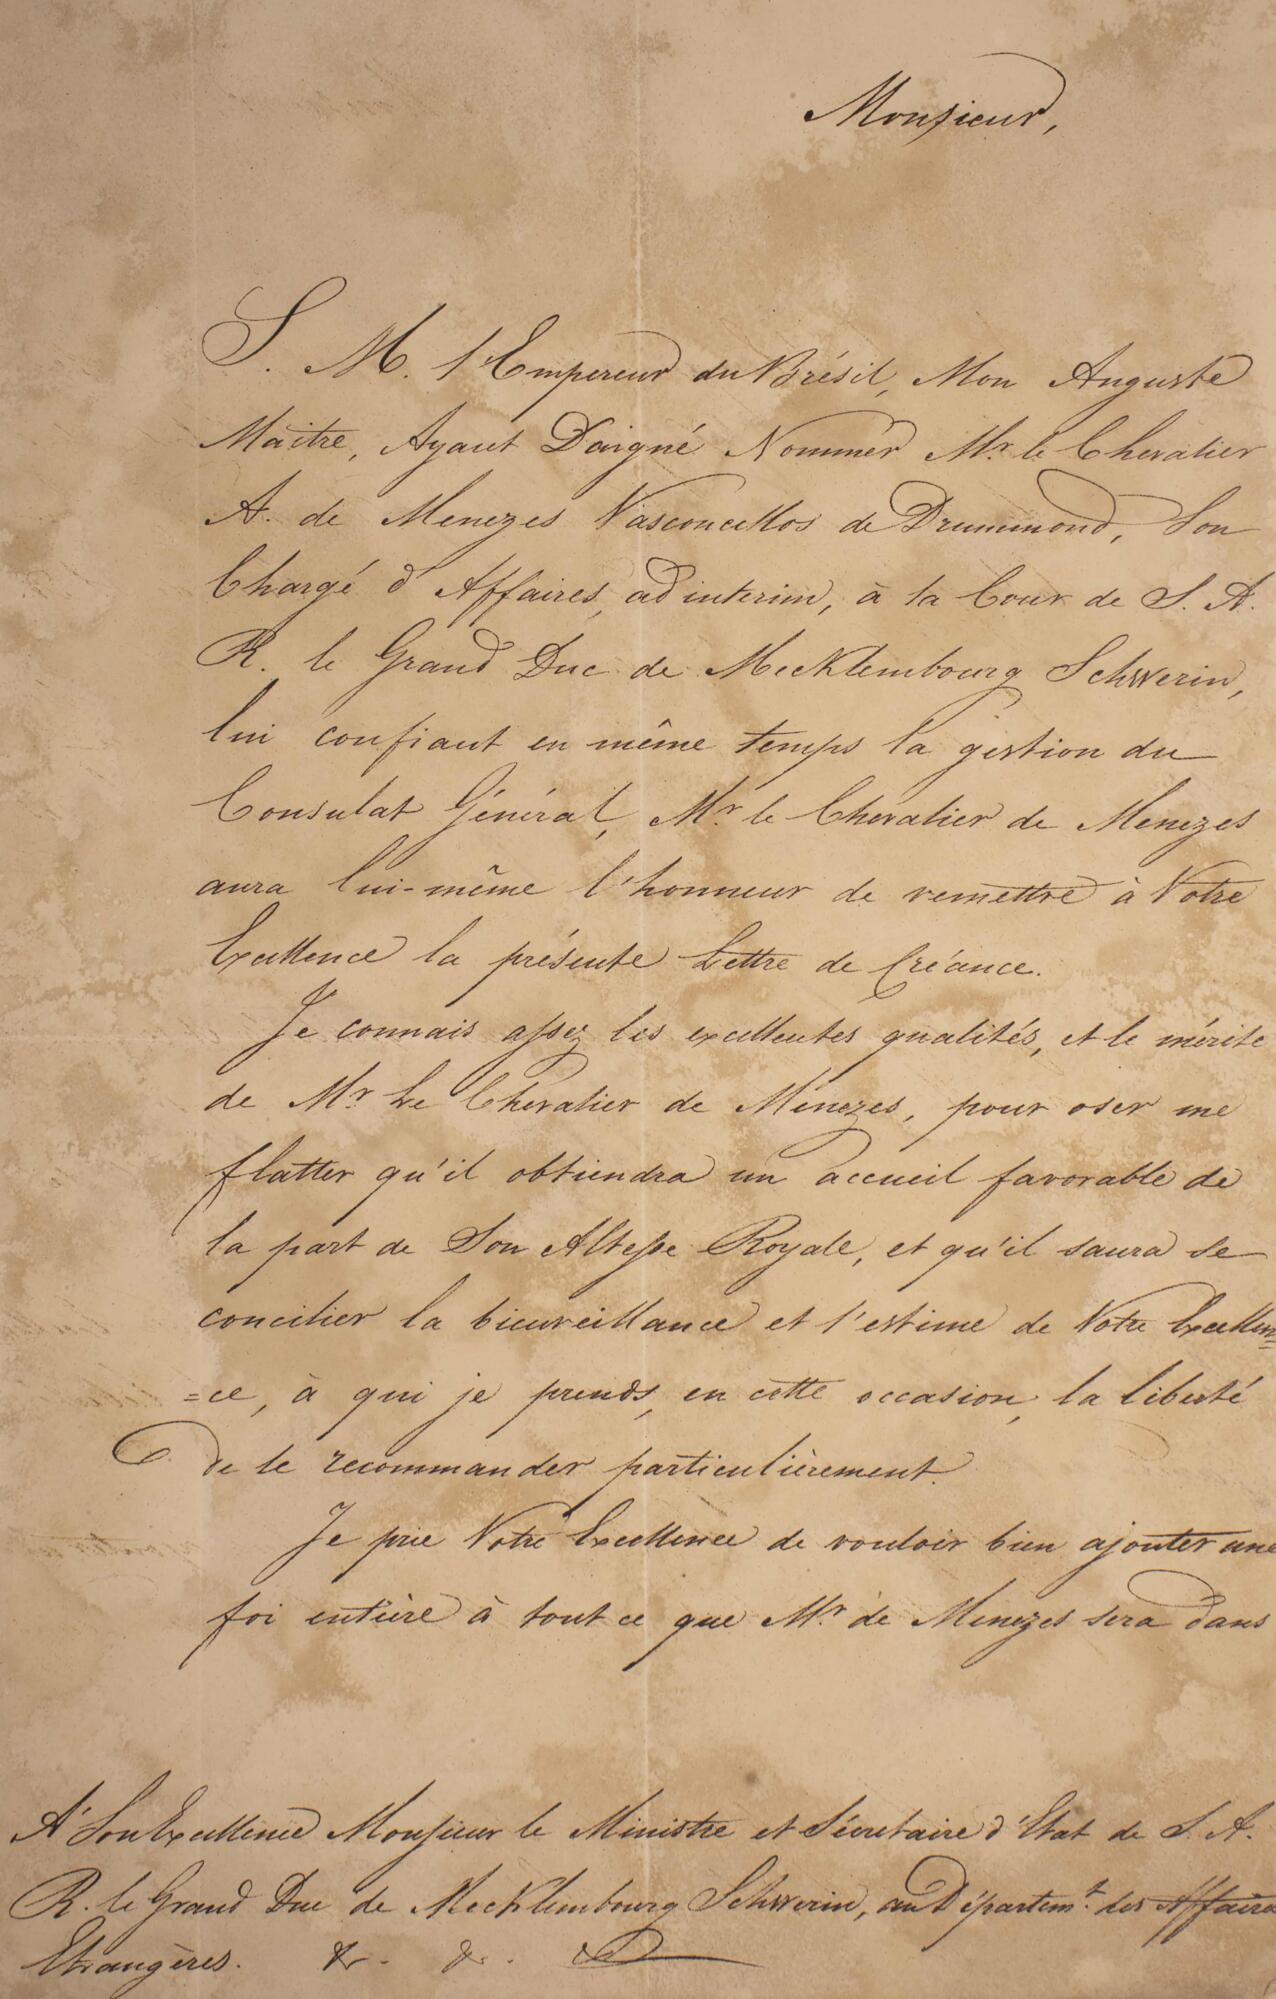 Monsieur,
S. M. l'Empereur du Brésil, Mon Auguste
Maitre, Ayant Daigné Nommer Mr. le Chevalier
A. de Menezes Vasconcellos de Drummond, Son
Chargé d'Affaires, ad interim, à la Cour de S. A.
R. le Grand Duc de Mecklembourg Schwerin,
lui confiant en même temps la gestion du
Consulat Général, Mr. le Chevalier de Menezes
aura lui-même l'honneur de remettre à Votre
Excellence la présente Lettre de Créance.
Je connais assez les excellentes qualités, et le mérite
de Mr. Le Chevalier de Menezes, pour oser me
flatter qu'il obtiendra un accueil favorable de
la part de Son Altesse Royale, et qu'il saura se
concilier la bienveillance et l'estime de Votre Excellen=
=ce, à qui je prends, en cette occasion, la liberté
de le recommander particulièrement.
Je prie Votre Excellence de vouloir bien ajouter une
foi entière à tout ce que Mr. de Menezes sera dans
A' Son Excellence Monsieur le Ministre et Sécretaire d'Etat de S. A.
R. le Grand Duc de Mecklembourg Schwerin, au Départem.t des Affaires
Etrangères. &. &. &